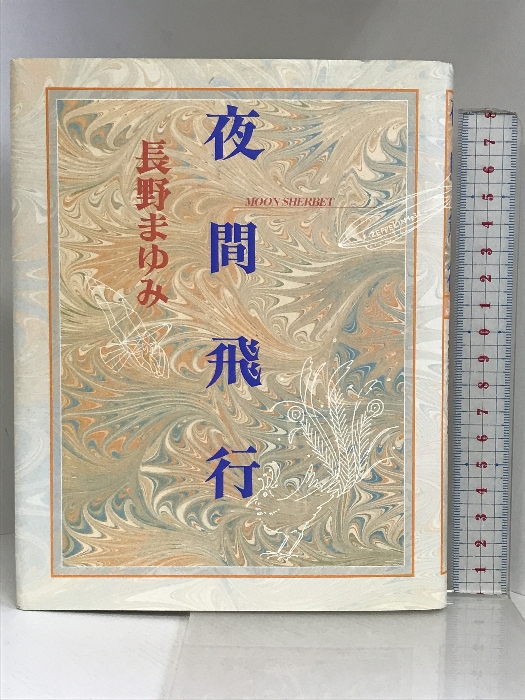 夜間飛行
長野まゆみ
MOON SHERBET
1 2 3 4 5 6 7 8 9 0 1 2 3 4 5 6 7 8